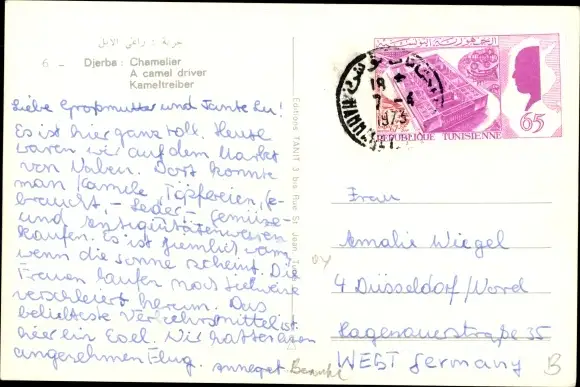 جربة : راعي الابل
6 - Djerba : Chamelier
A camel driver
Kameltreiber
Liebe Großmutter und Tante Lu!
Es ist hier ganz toll. Heute
waren wir auf dem Markt
von Nabeul. Dort konnte
man Kamele, Töpfereien, Ge-
braucht,- Leder,- Gemüse-
und Antiquitätenwaren
kaufen. Es ist ziemlich warm
wenn die Sonne scheint. Die
Frauen laufen noch teilweise
verschleiert herum. Das
beliebteste Verkehrsmittel ist
hier ein Esel. Wir hatten einen
angenehmen Flug. Annegret
Editions TANIT 3 bis Rue St. Jean
الجمهورية التونسية
18
7 - 4
1973
REPUBLIQUE TUNISIENNE
65
Frau
Amalie Wiegel
4 Düsseldorf/Nord
Hagenauerstraße 35
WEST Germany
B